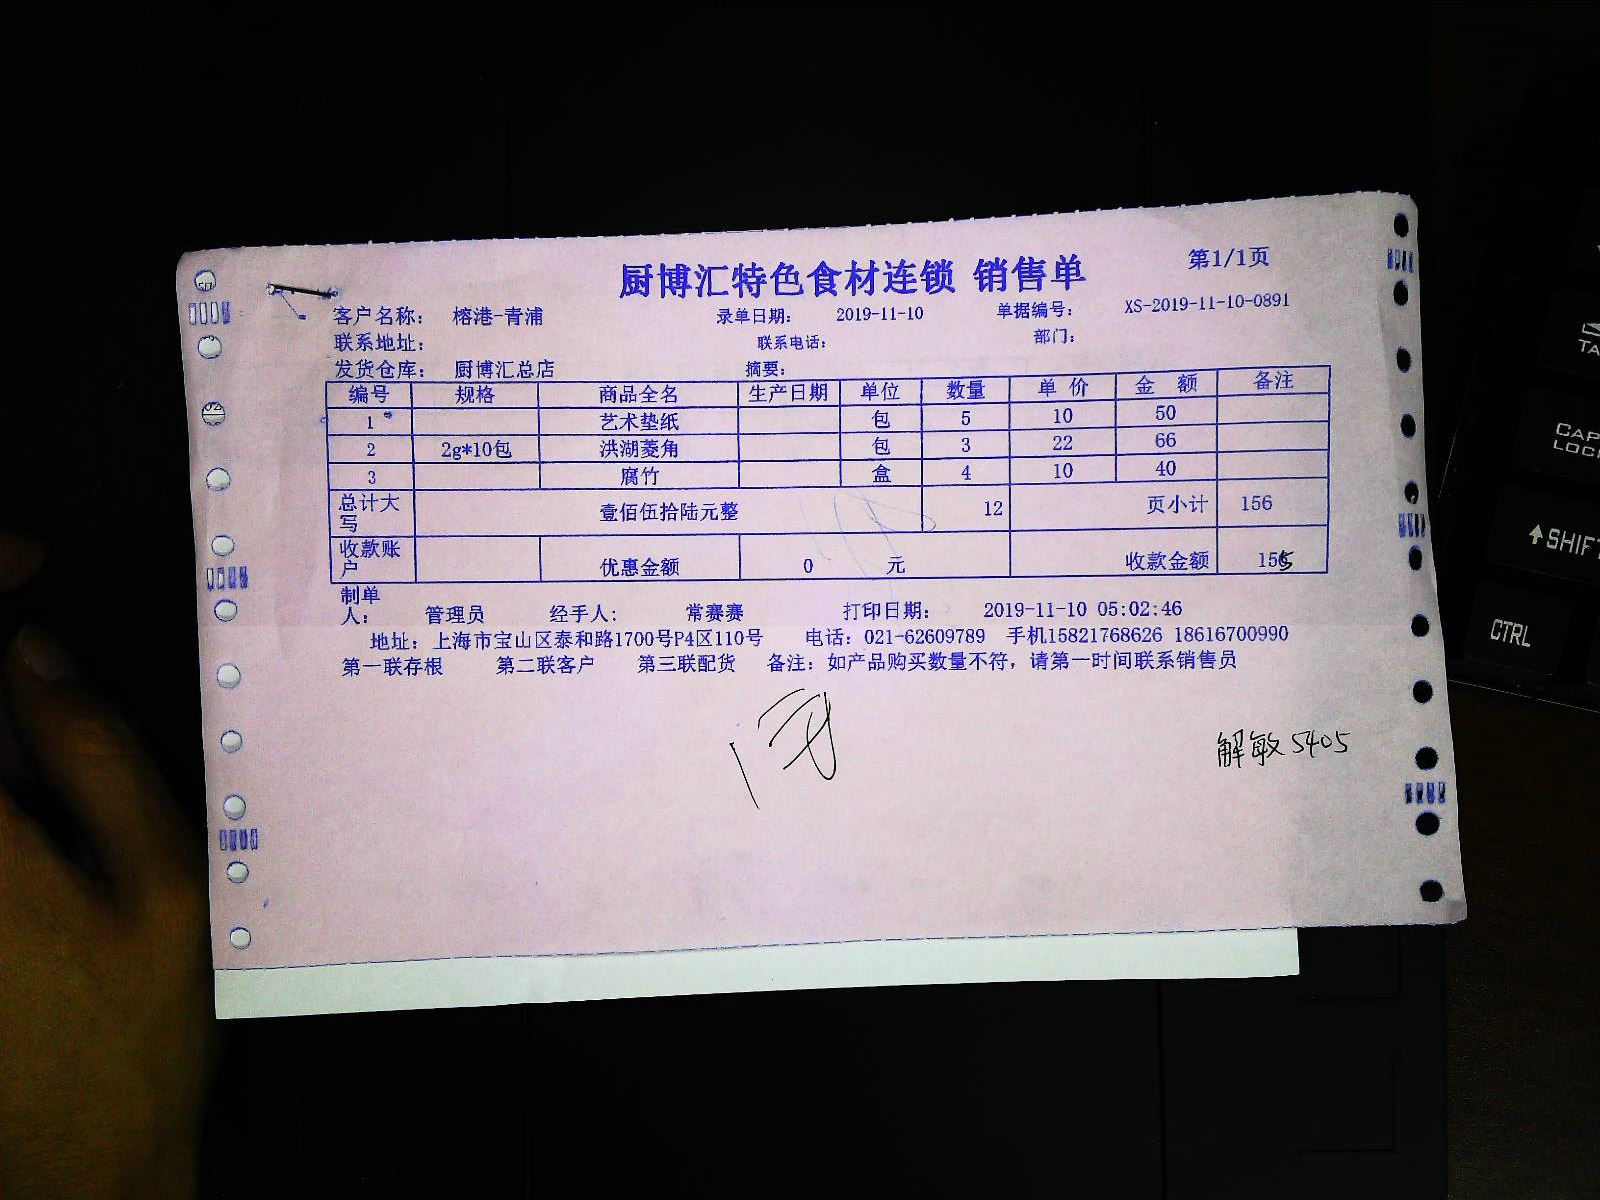 厨博汇特色食材连锁 销售单 第1/1页
客户名称: 榕港-青浦 录单日期: 2019-11-10 单据编号: XS-2019-11-10-0891
联系地址: 联系电话: 部门:
发货仓库: 厨博汇总店 摘要:
编号 规格 商品全名 生产日期 单位 数量 单价 金额 备注
1 艺术垫纸 包 5 10 50
2 2g*10包 洪湖菱角 包 3 22 66
3 腐竹 盒 4 10 40
总计大写 壹佰伍拾陆元整 12 页小计 156
收款账户 优惠金额 0 元 收款金额 155
制单人: 管理员 经手人: 常赛赛 打印日期: 2019-11-10 05:02:46
地址: 上海市宝山区泰和路1700号P4区110号 电话: 021-62609789 手机15821768626 18616700990
第一联存根 第二联客户 第三联配货 备注: 如产品购买数量不符,请第一时间联系销售员
解敏5405
CAP
LOC
SHIF
CTRL
TA